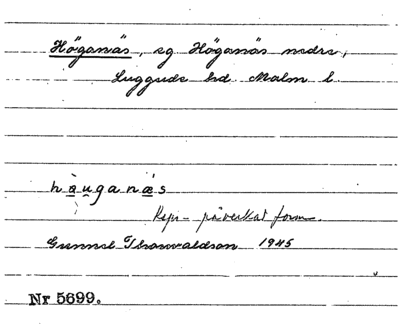 Höganäs, sg Höganäs nedre,
Luggude hd Malm l.
hau̯ganæs
Rspr-påverkat form.
Gunnel Thorwaldson 1945
Nr 5699.